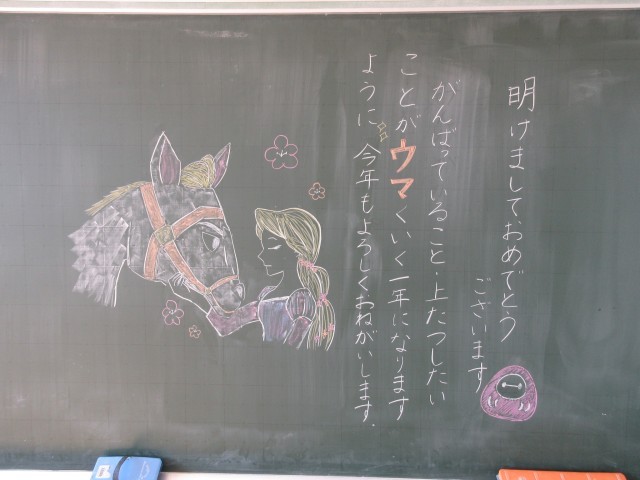 明けましておめでとう
ございます
がんばっていること・上たつしたい
ことがウマくいく一年になります
ように 今年もよろしくおねがいします.